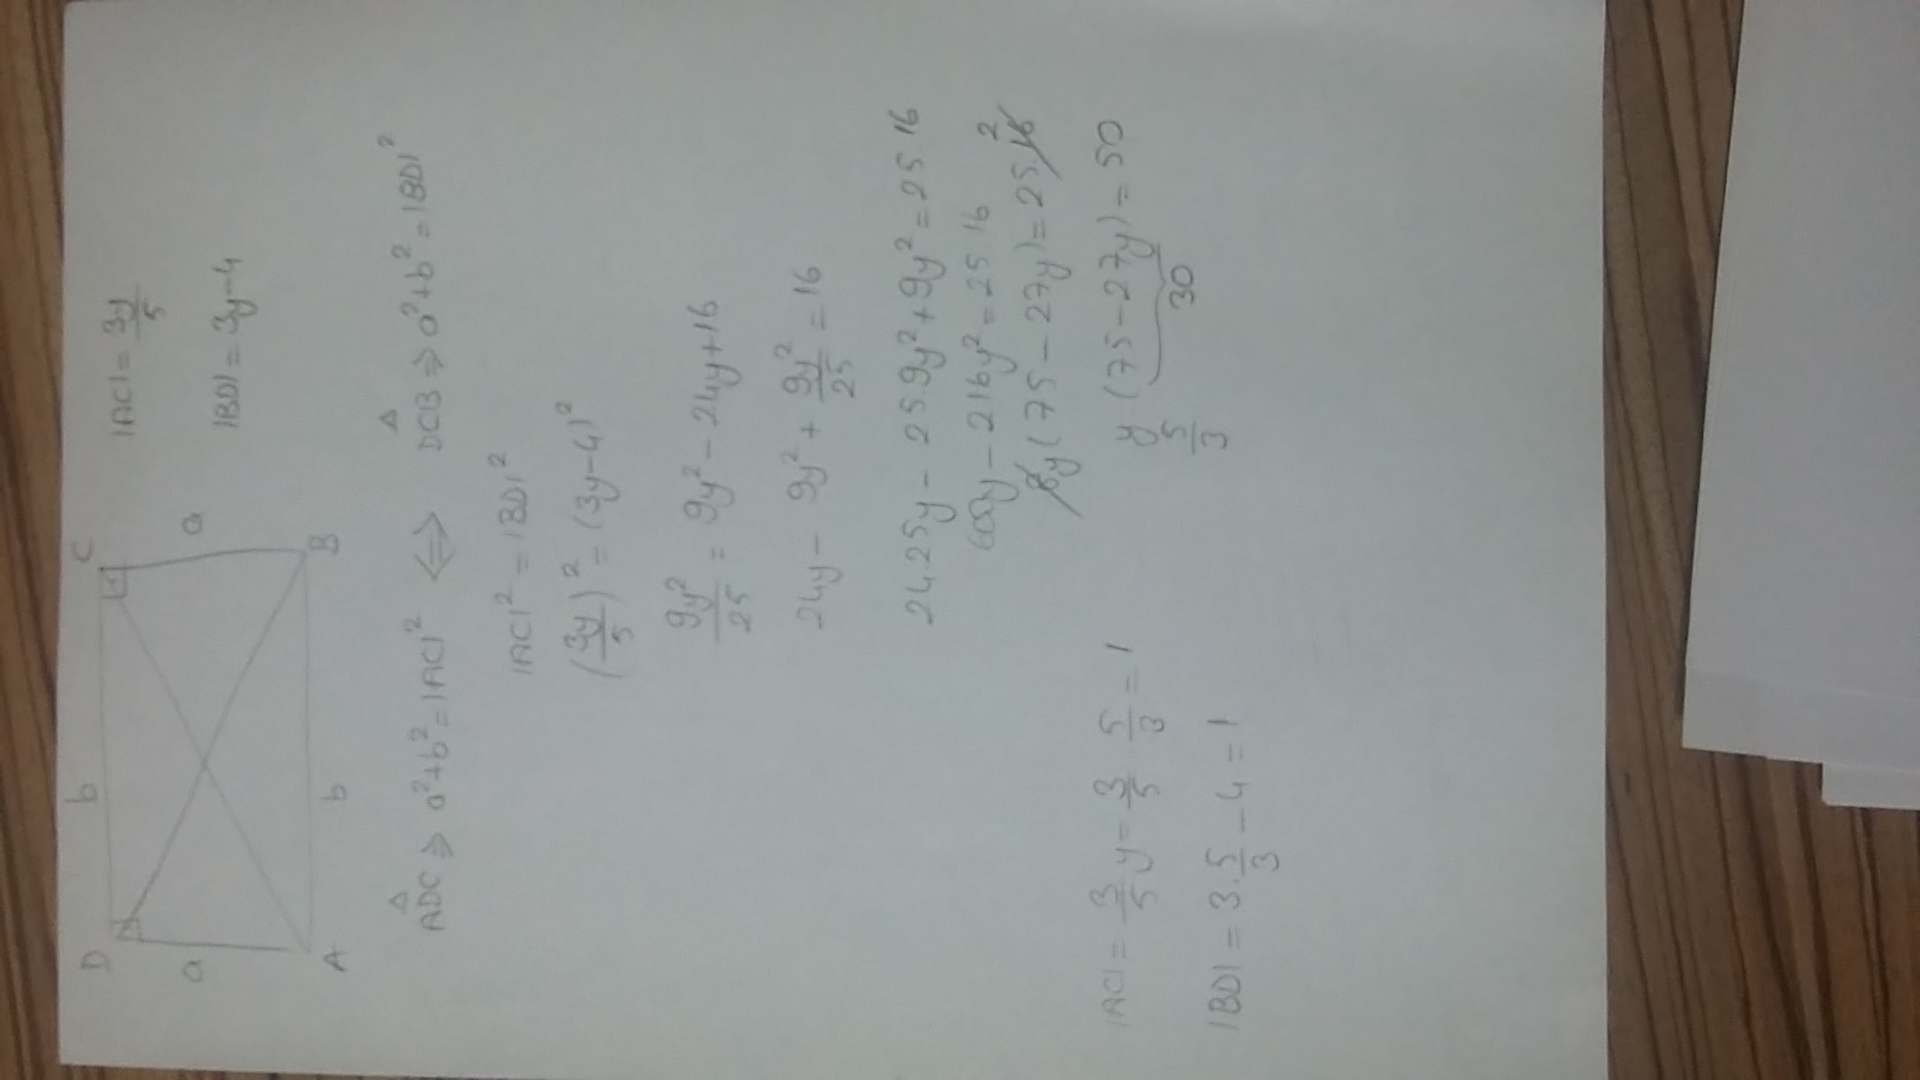 D b C
a a
A b B
|AC| = 3y/5
|BD| = 3y-4
ADC ⇒ a²+b² = |AC|² ⇔ DCB ⇒ a²+b² = |BD|²
|AC|² = |BD|²
(3y/5)² = (3y-4)²
9y²/25 = 9y² - 24y+16
24y - 9y² + 9y²/25 = 16
24.25y - 25.9y² + 9y² = 25.16
600y - 216y² = 25.16
8y(75 - 27y) = 25.16 2
y.(75-27y) = 50
5/3 30
|AC| = 3/5 y = 3/5 . 5/3 = 1
|BD| = 3. 5/3 - 4 = 1